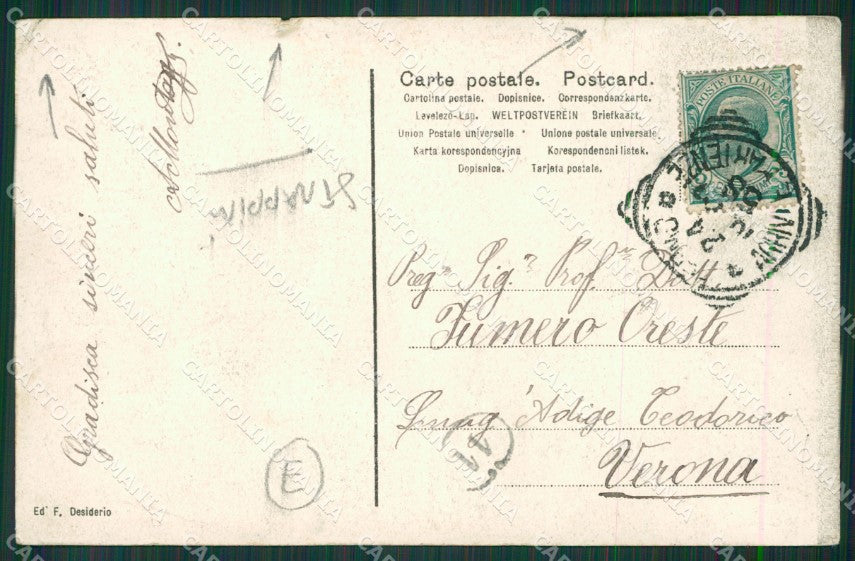 Carte postale. Postcard.
Cartolina postale. Dopisnice. Correspondenzkarte.
Levelező-Lap. WELTPOSTVEREIN Briefkaart.
Union Postale universelle * Unione postale universale
Karta korespondencyjna Korespondencni listek.
Dopisnica. Tarjeta postale.
POSTE ITALIANE
Preg.mo Sig.r Prof.r Dott
Fumero Oreste
Lung'Adige Teodorico
Verona
Gradisca sinceri saluti
STRAPPINI
E
Ed' F. Desiderio
CARTOLINOMANIA